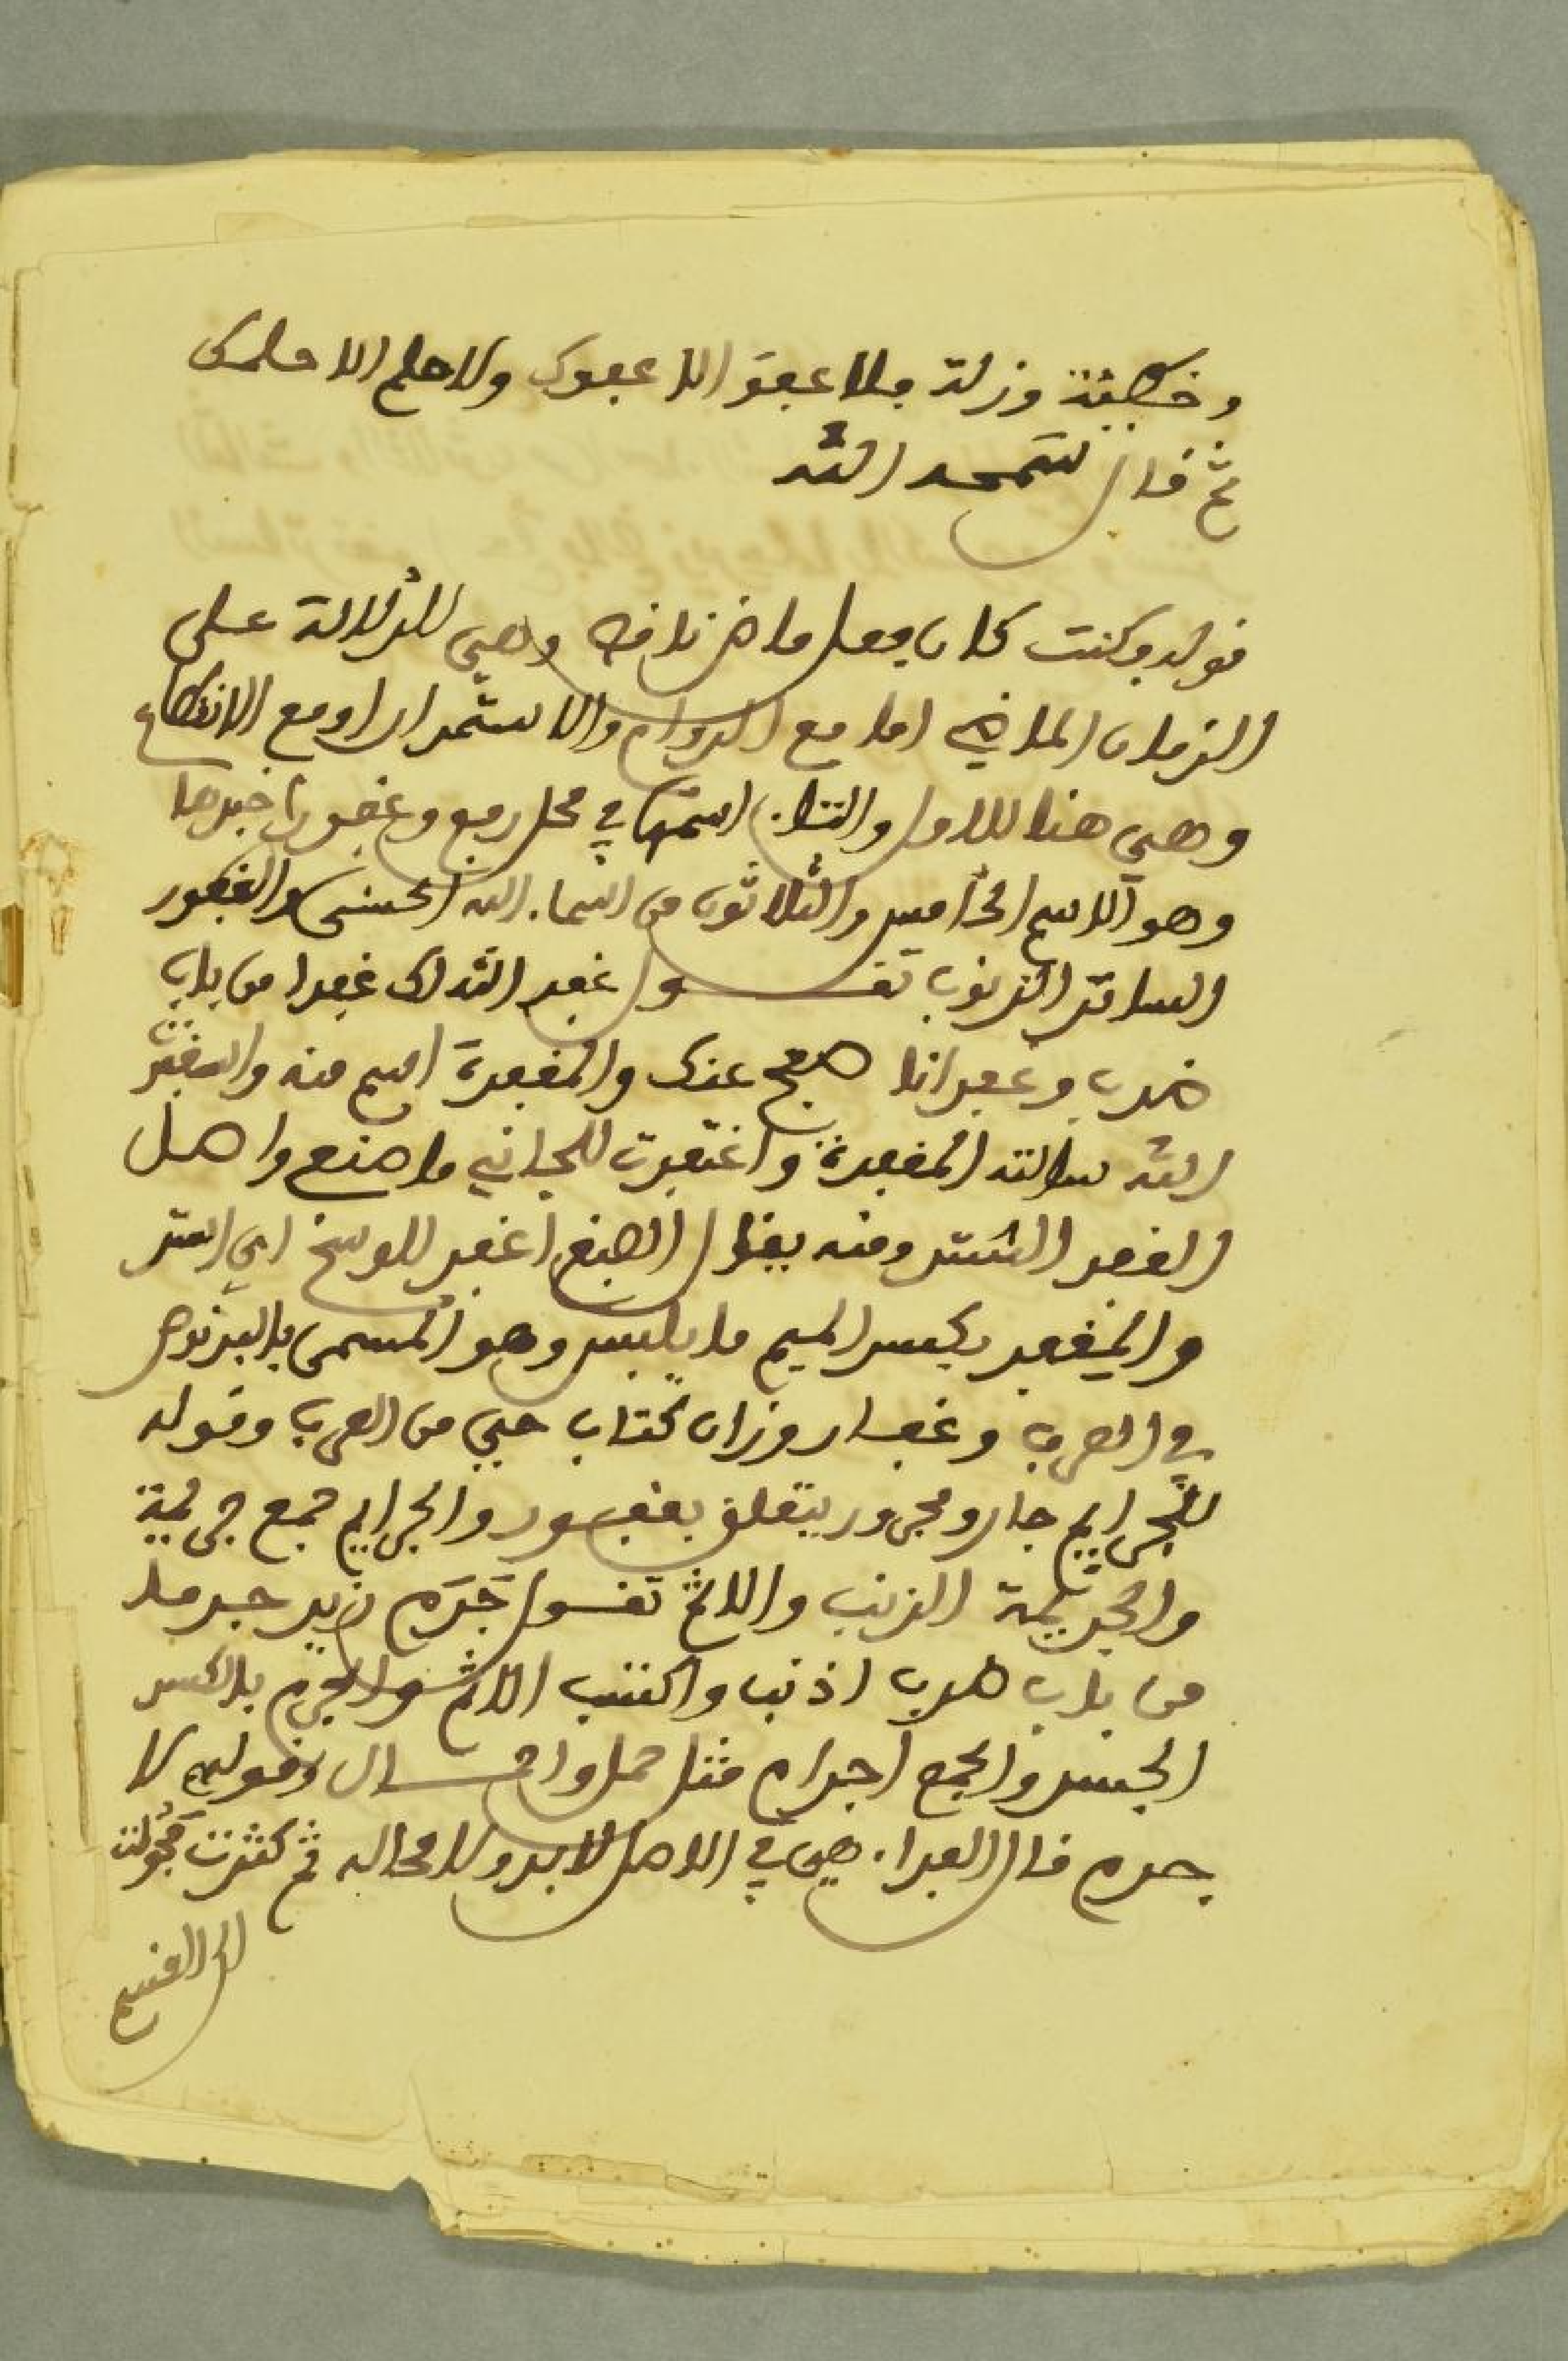 وخطيئة وزلة فلا عفو الا عفوك ولا حلم الا حلمك
ثم قال لتحمد الله
قوله وكنت كان فعل ماض ناقص وهي للدلالة على
الزمان الماضي اما مع الدوام والاستمرار او مع الانقطاع
وهي هنا للاول والتاء اسمها في محل رفع وغفورا خبرها
وهو الاسم الخامس والثلاثون من اسماء الله الحسنى والغفور
الساتر الذنوب تقول غفر الله لك غفرا من باب
ضرب وغفرانا صفح عنك والمغفرة اسم منه واستغفر
الله سالته المغفرة واغتفرت للجاني ما صنع واصل
الغفر الستر ومنه يقال الصبغ اغفر للوسخ اي استر
والمغفر بكسر الميم ما يلبس وهو المسمى بالبرنوص
في العرب وغفار وزان كتاب حي من العرب وقوله
للجرايم جار ومجرور يتعلق بغفور والجرايم جمع جريمة
والجريمة الذنب والاثم تقول جرم زيد جرما
من باب ضرب اذنب واكتسب الاثم والجرم بالكسر
الجسد والجمع اجرام مثل حمل واحمال وقولهم لا
جرم قال الفراء هي في الاصل لا بد ولا محالة ثم كثرت فحولت
الى القسم